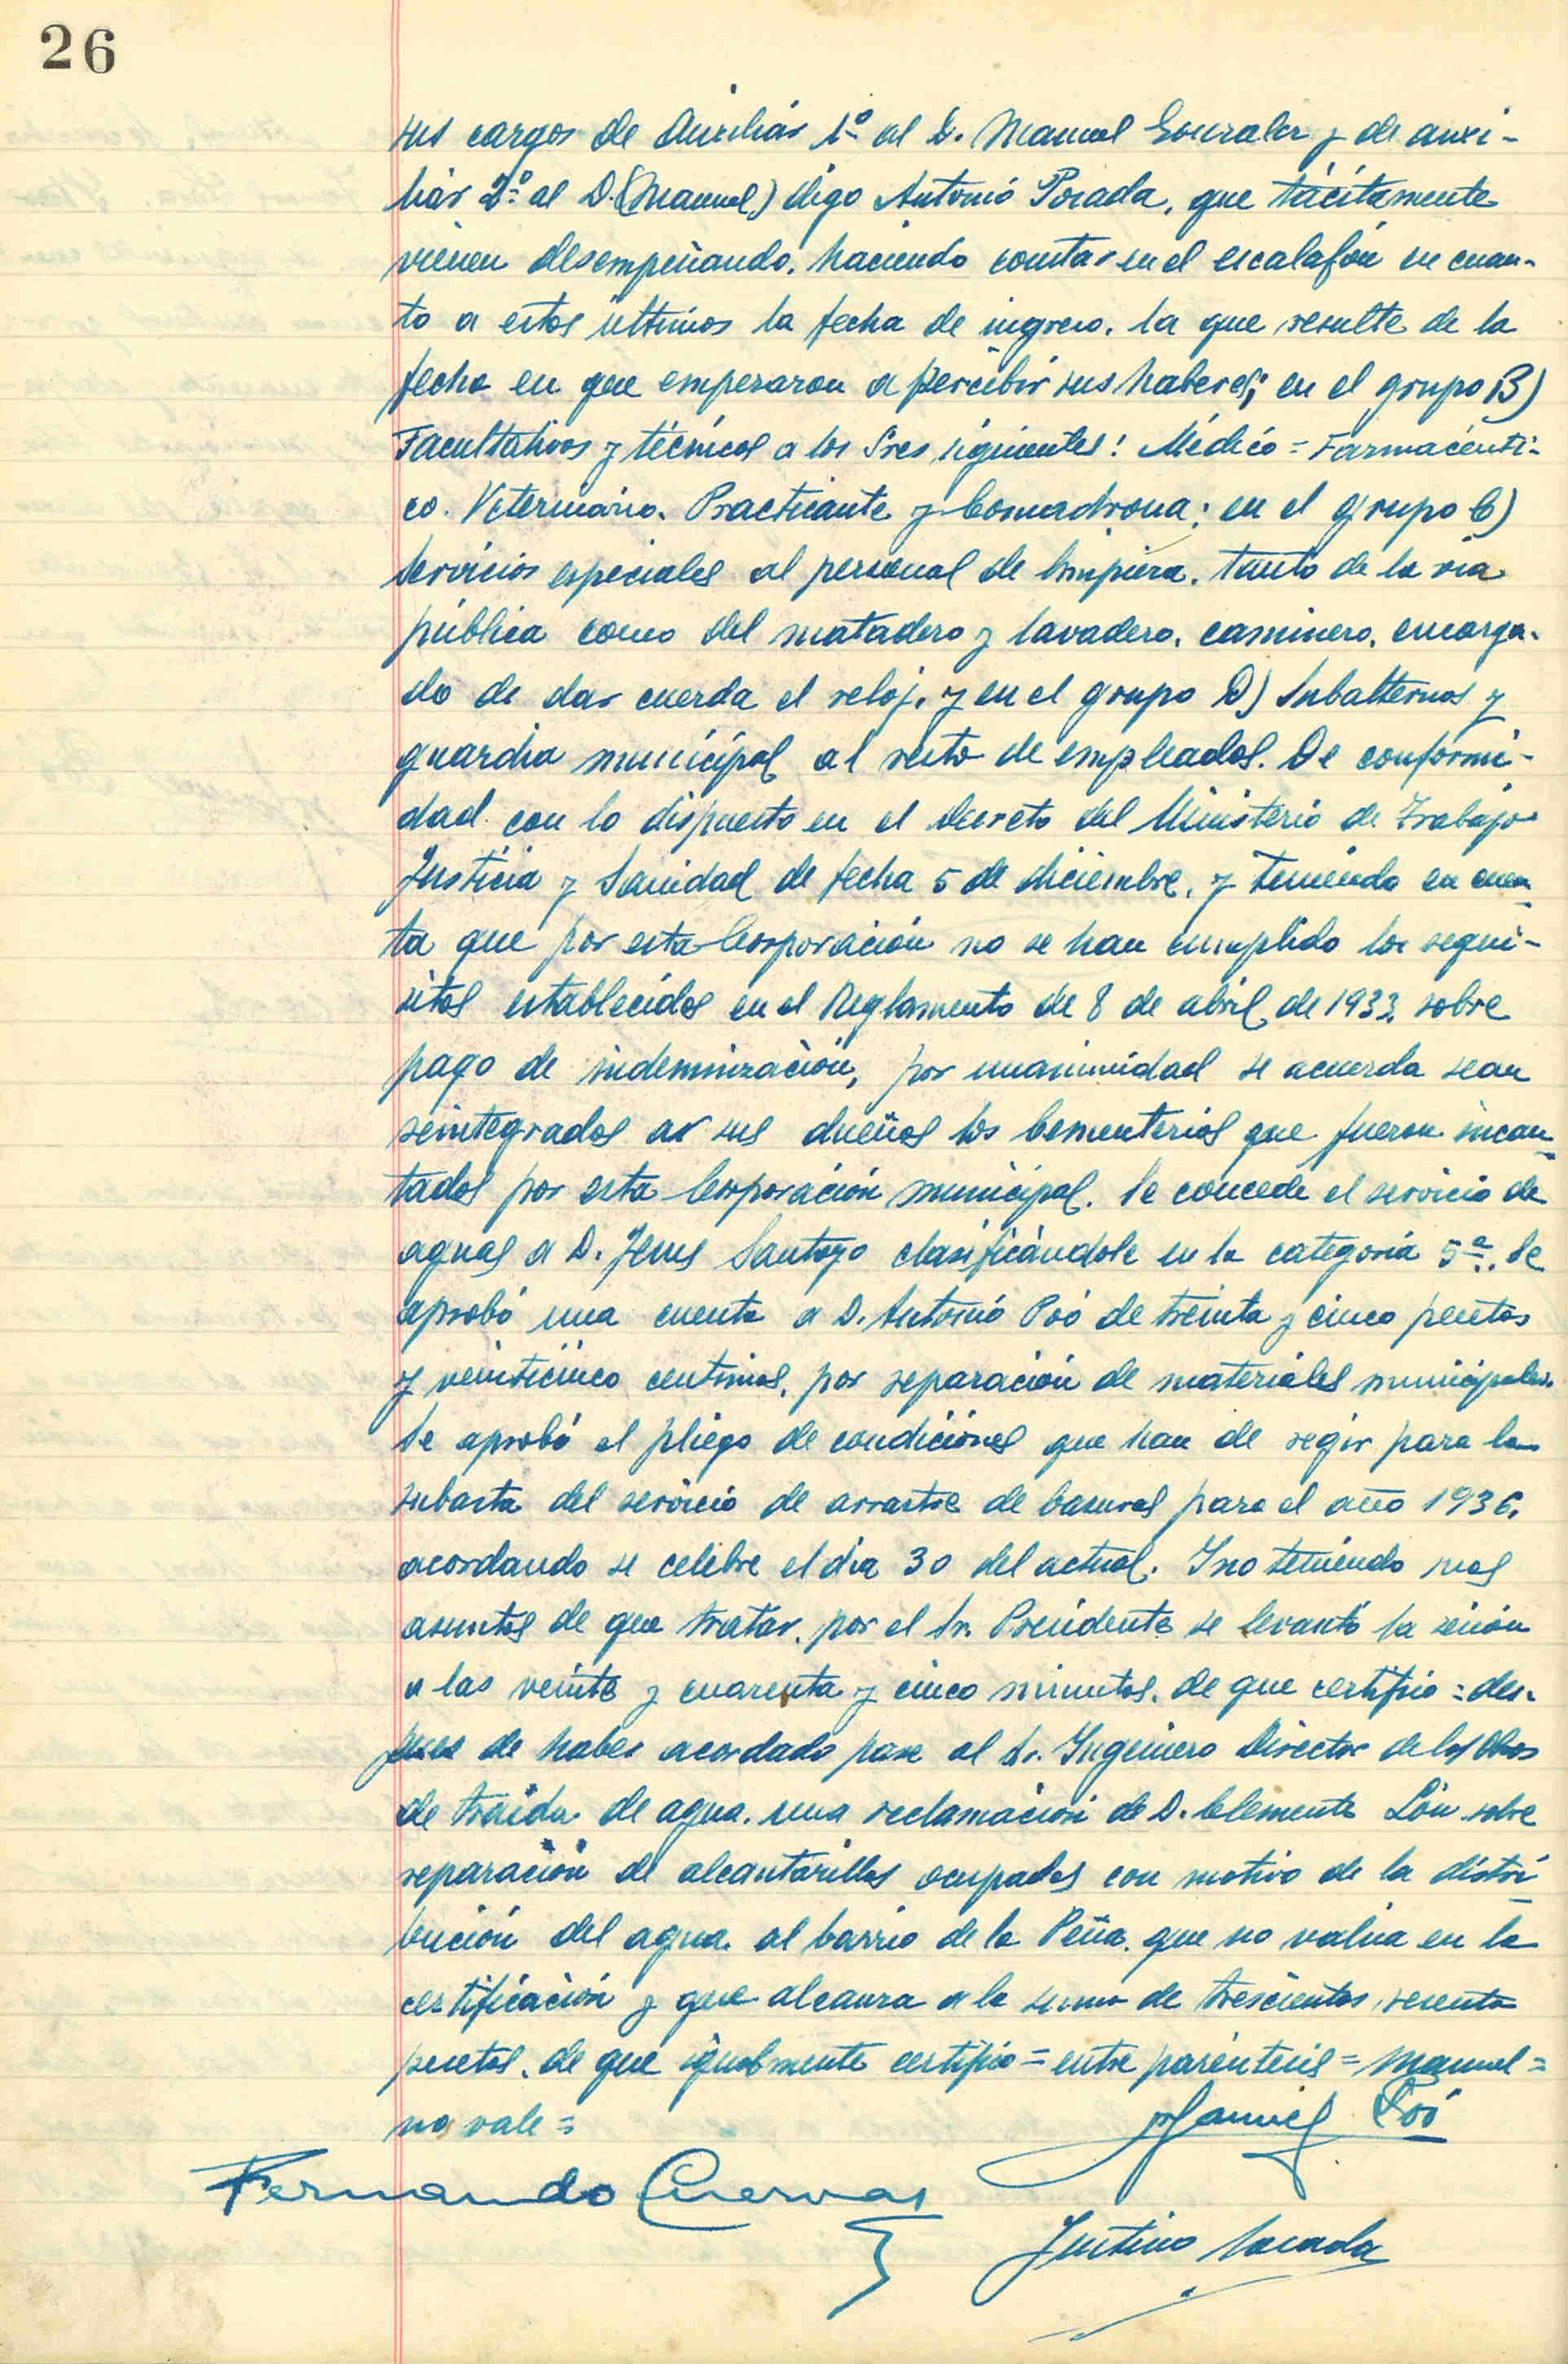 26
sus cargos de Auxiliar 1º al D. Manuel Gonzalez y de auxi-
liar 2º al D. (Manuel) digo Antonio Posada, que tácitamente
vienen desempeñando, haciendo constar en el escalafón en cuan-
to a estos últimos la fecha de ingreso, la que resulte de la
fecha en que empezaron a percibir sus haberes; en el grupo B)
Facultativos y técnicos a los Sres siguientes: Médico = Farmacéuti-
co. Veterinario. Practicante y Comadrona; en el grupo C)
Servicios especiales al personal de limpieza, tanto de la via
pública como del matadero y lavadero, caminero, encarga-
do de dar cuerda el reloj, y en el grupo D) Subalternos y
guardia municipal al resto de empleados. De conformi-
dad con lo dispuesto en el Decreto del Ministerio de Trabajo
Justicia y Sanidad de fecha 5 de diciembre, y teniendo en cuen-
ta que por esta Corporación no se han cumplido los requi-
sitos establecidos en el Reglamento de 8 de abril de 1933, sobre
pago de indemnización, por unanimidad se acuerda sean
reintegrados a sus dueños los Cementerios que fueron incau-
tados por esta Corporación municipal. Se concede el servicio de
aguas a D. Jesus Santoyo clasificándole en la categoria 5ª. Se
aprobó una cuenta a D. Antonio Poó de treinta y cinco pesetas
y veinticinco centimos, por reparación de materiales municipales.
Se aprobó el pliego de condiciones que han de regir para la
subasta del servicio de arrastre de basuras para el año 1936,
acordando se celebre el dia 30 del actual. Y no teniendo mas
asuntos de que tratar, por el Sr. Presidente se levantó la sesión
a las veinte y cuarenta y cinco minutos, de que certifico = des-
pues de haber acordado pase al Sr. Ingeniero Director de las Obras
de traida de agua, una reclamación de D. Clemente sobre
reparación de alcantarillas ocupadas con motivo de la distri-
bución del agua al barrio de la Peña, que no valua en la
certificación y que alcanza a la suma de trescientas sesenta
pesetas, de que igualmente certifico = entre paréntesis = Manuel =
no vale =
Manuel Poó
Fernando Cuervas
Justino Posada